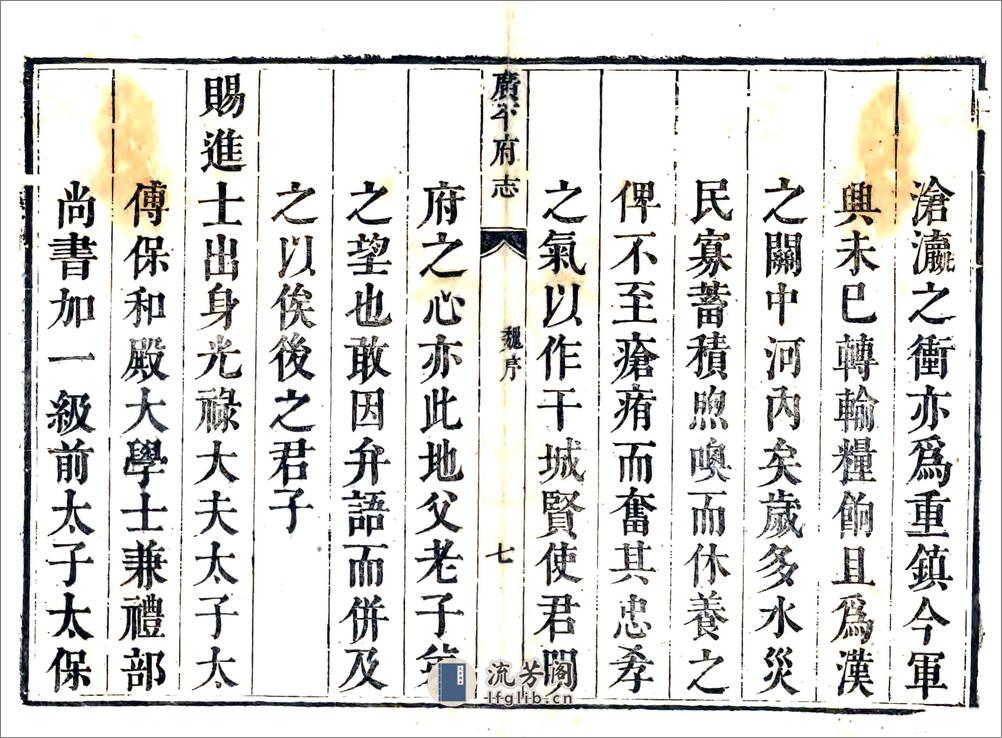 滄瀛之衝亦爲重鎮今軍
興未已轉輸糧餉且爲漢
之關中河內矣歲多水災
民寡蓄積煦噢而休養之
俾不至瘡痏而奮其忠孝
之氣以作干城賢使君明
廣平府志 魏序 七
府之心亦此地父老子弟
之望也敢因弁語而併及
之以俟後之君子
賜進士出身光祿大夫太子太
傅保和殿大學士兼禮部
尚書加一級前太子太保
流芳阁
lfglib.cn